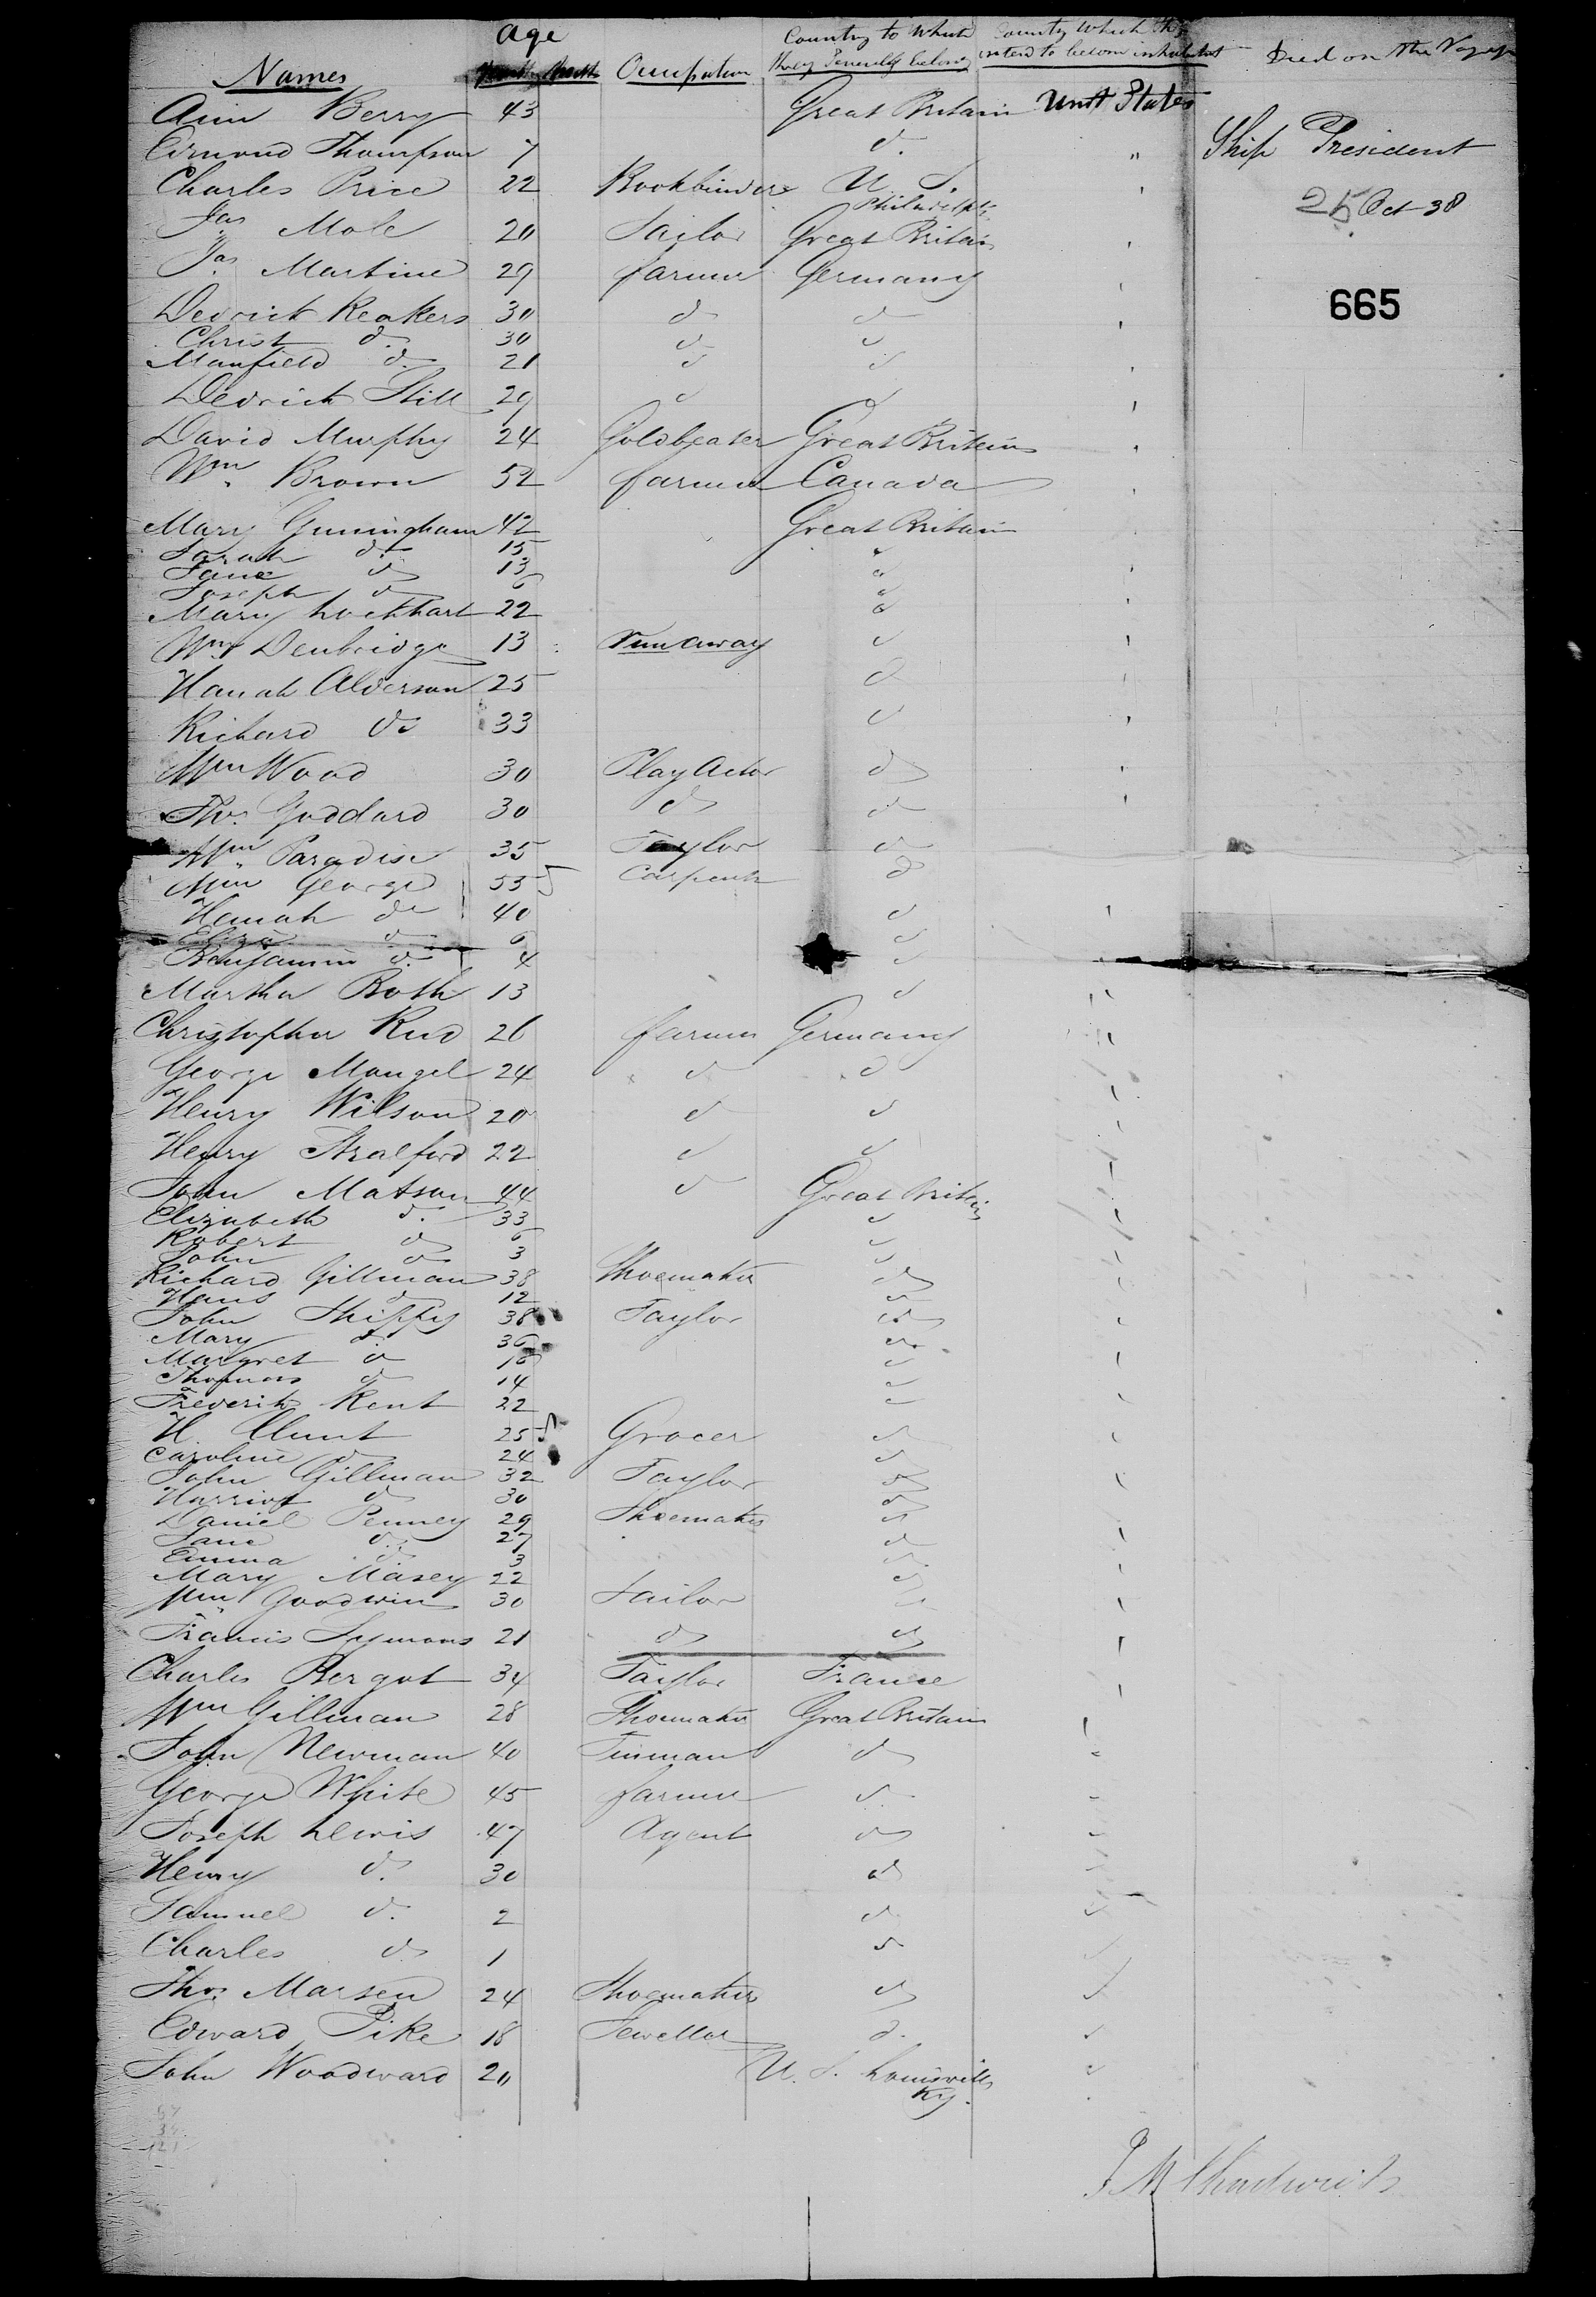 Names age Years Months Occupation Country to which they severally belong Country which they intend to become inhabitants Died on the Voyage
Ann Berry 43 Great Britain Unit States
Edmond Thompson 7 do "
Ship President
Charles Price 22 Bookbinder U. S. Philadelpha
25 Oct 38
Jas Mole 20 Sailor Great Britain
Jas Martine 29 farmer Germany
665
Dedrick Reakers 30 d d
Christ do 30 d d
Manfield do 21 d d
Dedrick Still 29 d d
David Murphy 24 Goldbeater Great Britain
Wm Brown 52 farmer Canada
Mary Guningham 42 Great Britain
Sarah do 15 d
Jane do 13 d
Joseph do 6 d
Mary Lockhart 22 d
Wm Denbridge 13 runaway d
Hanah Alderson 25 d
Richard do 33 d
Wm Wood 30 Play Actor do
Thos Goddard 30 do d
Wm Paradise 35 Taylor d
Wm George 55 Carpentr d
Hanah do 40 d
Eliza d 6 d
Benjamin d. 4 d
Martha Roth 13 d
Christopher Rud 26 farmer Germany
George Mangel 24 d d
Henry Wilson 20 d d
Henry Stralford 22 d d
John Matson 44 d Great Britain
Elizabeth d. 33 d
Robert do 6 d
John do 3 d
Richard Gillman 38 Shoemaker do
Hans d 12 d
John Shippy 38 Taylor do
Mary d. 36 d
Margret d 16 d
Thomas d 14 d
Frederik Kent 22 d
H. Hunt 25 Grocer d
Caroline d 24 d
John Gillman 32 Taylor d
Harriot do 30 d
Daniel Penney 29 Shoemaker d
Jane d. 27 d
Emma d. 3 d
Mary Masey 22 d
Wm Goodwin 30 Sailor
Francis Symons 21 do do
Charles Bergot 34 Taylor France
Wm Gillman 28 Shoemaker Great Britain
John Newman 40 Tinman do
George White 45 farmer d.
Joseph Lewis 47 Agent do
Henry d. 30 do
Samuel d. 2 d
Charles do 1 d
Thos Marsen 24 Shoemaker do
Edward Pike 18 Jeweller d.
John Woodward 20 U. S. Louisville Ky.